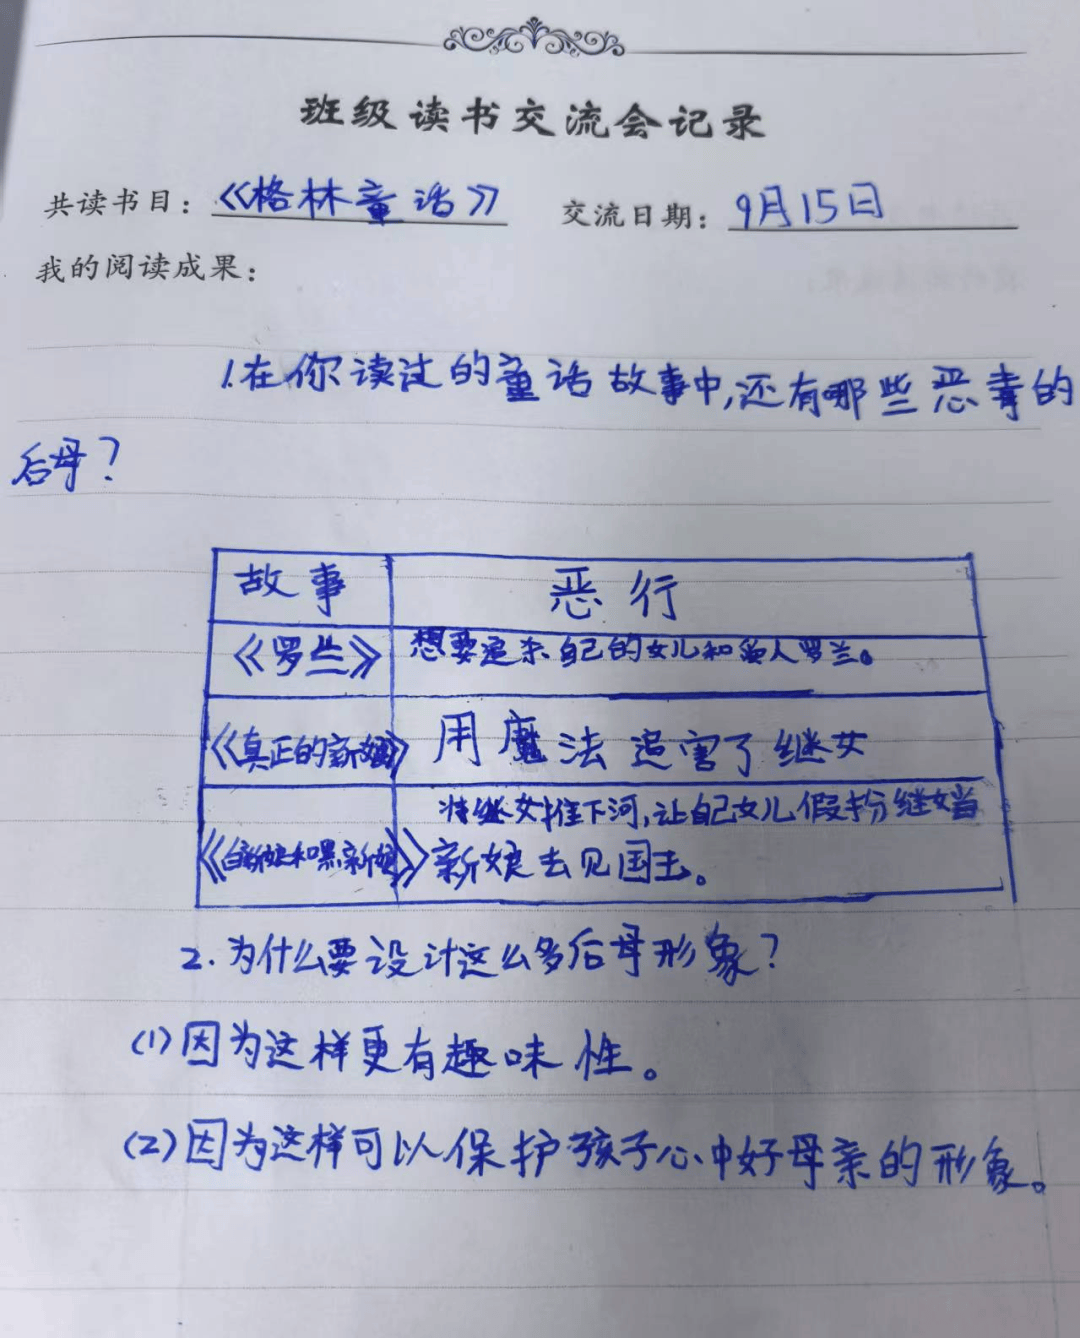 班级读书交流会记录
共读书目：《格林童话》 交流日期：9月15日
我的阅读成果：
1.在你读过的童话故事中,还有哪些恶毒的
后母？
故事 恶行
《罗兰》 想要追杀自己的女儿和爱人罗兰。
《真正的新娘》 用魔法迫害了继女
《白新娘和黑新娘》 将继女推下河,让自己女儿假扮继女当
新娘去见国王。
2.为什么要设计这么多后母形象？
(1)因为这样更有趣味性。
(2)因为这样可以保护孩子心中好母亲的形象。